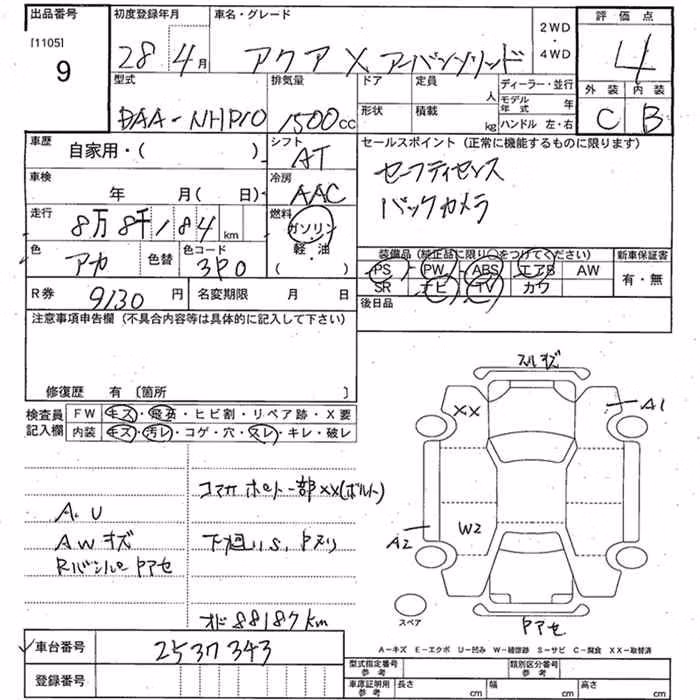 出品番号 初度登録年月 車名・グレード 2WD・4WD 評価点
[1105] 9 28年 4月 アクア X アーバンソリッド 4
型式 排気量 ドア 定員 人 ディーラー・並行 外装 内装
DAA-NHP10 1500cc 形状 積載 kg モデル年式 年 C B
ハンドル 左・右
車歴 自家用・( ) シフト AT セールスポイント (正常に機能するものに限ります)
セーフティセンス
車検 年 月( 日) 冷房 AAC バックカメラ
走行 8万8千184km 燃料 ガソリン・軽・油 ( )
色 アカ 色替 色コード 3P0 装備品(純正品に限り○をつけてください) 新車保証書
PS・PW・ABS・エアB AW 有・無
R券 9130円 名変期限 月 日 SR ナビ TV カワ
注意事項申告欄(不具合内容等は具体的に記入して下さい) 後日品
修復歴 有〔箇所 〕
検査員記入欄 FW キズ・飛石・ヒビ割・リペア跡・X要
内装 キズ・汚レ・コゲ・穴・スレ・キレ・破レ
スルキズ
XX A1
コアサポート一部XX(ボルト)
A.U
AWキズ 下廻りS、Pヌリ
RバンパーPアセ
W2
A2
オド88187km
スペア
Pアセ
車台番号 2537343
A-キズ E-エクボ U-凹み W-補修跡 S-サビ C-腐食 XX-取替済
登録番号 型式指定番号 参考 類別区分番号 参考
車庫証明用 参考 長さ cm 幅 cm 高さ cm